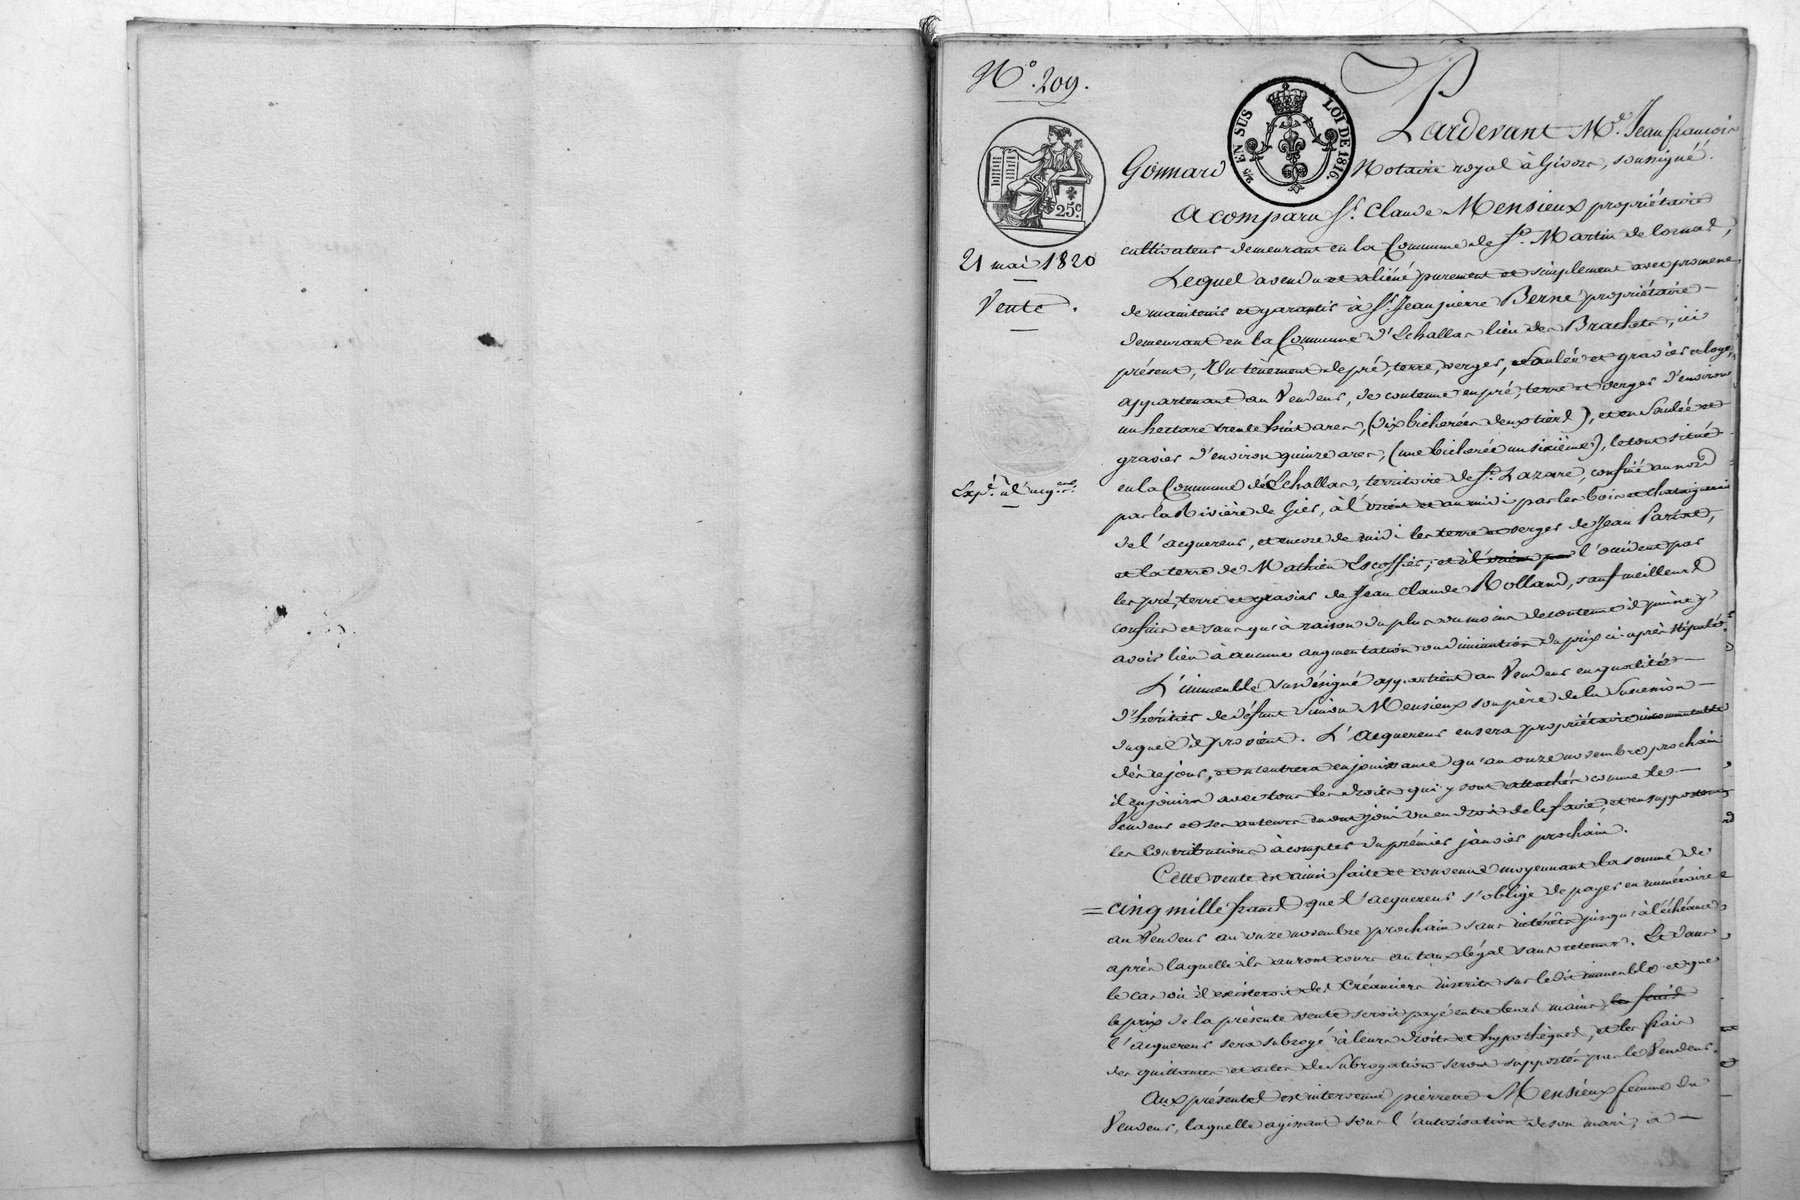 N.º 209.
EN SUS
LOI DE 1816.
25c.
21 mai 1820
Vente.
Expé. à l'acqr.
Pardevant Me. Jean françois
Gonnard Notaire royal à Givors, soussigné.
A comparu Sr. Claude Mensieux propriétaire
cultivateur demeurant en la Commune de St. Martin de Cornas,
Lequel a vendu et aliéné purement et simplement avec promesse
de maintenir et garantir à Sr. Jean pierre Berne propriétaire
demeurant en la Commune d'Echallas lieu des Brachets, ici
présent, Un tènement de pré, terre, verger, saulée et gravier et loge,
appartenant au Vendeur, de contenue en pré, terre et verger d'environ
un hectare trente huit ares, (dix bicherées deux tiers), et en Saulée et
gravier d'environ quinze ares, (une bicherée un sixième), le tout situé
en la Commune d'Echallas, territoire de St. Lazare, confiné au nord
par la Rivière de Gier, à l'orient et au midi par les bois et chataigneraie
de l'acquereur, et encore de midi les terre et verger de Jean Parixt,
et la terre de Mathieu Escoffier; et à l'orient par l'occident par
les pré, terre et gravier de Jean Claude Rolland, sauf meilleurs
confins et sans qu'à raison du plus ou moins de contenue il puisse y
avoir lieu à aucune augmentation ou diminution du prix ci-après stipulé.
L'immeuble susdésigné appartient au Vendeur en qualité
d'héritier de défunt Simon Mensieux son père de la Succession
duquel il provient. L'acquereur en sera propriétaire incommutable
dès ce jour, et n'entrera en jouissance qu'au onze novembre prochain
il en jouira avec tous les droits qui y sont attachés comme le
Vendeur et ses auteurs en ont joui ou en droit de le faire, et en supportera
les Contributions à compter du prémier janvier prochain.
Cette vente est ainsi faite et convenue moyennant la somme de
= cinq mille francs que l'acquereur s'oblige de payer en numéraire
au Vendeur au onze novembre prochain sans intérêts jusqu'à l'échéance,
après laquelle ils auront cours au taux légal sans retenue. Et dans
le cas où il existeroit des Créanciers inscrits sur le dit immeuble et que
le prix de la présente vente seroit payé entre leurs mains, les frais
l'acquereur sera subrogé à leurs droits et hypothèques, et les frais
des quittances et actes de Subrogation seront supportés par le Vendeur.
Aux présentes est intervenue pierrette Mensieux femme du
Vendeur, laquelle agissant sous l'autorisation de son mari, a